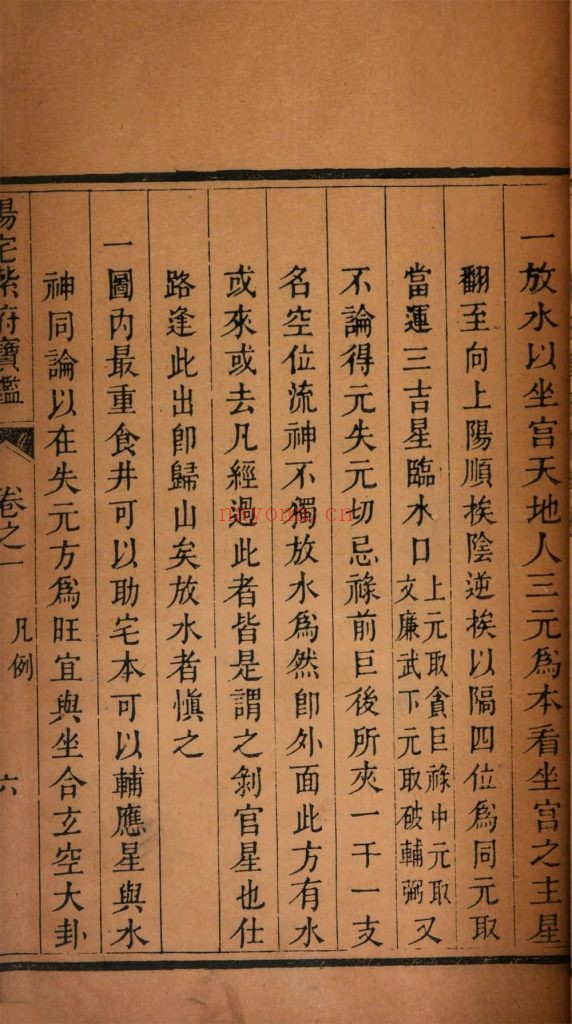 一放水以坐宫天地人三元爲本看坐宫之主星
翻至向上陽順挨陰逆挨以隔四位爲同元取
當運三吉星臨水口上元取貪巨祿中元取文廉武下元取破輔弼又
不論得元失元切忌祿前巨後所夾一干一支
名空位流神不獨放水爲然卽外面此方有水
或來或去凡經過此者皆是謂之剝官星也仕
路逢此出卽歸山矣放水者慎之
一圖內最重食井可以助宅本可以輔應星與水
神同論以在失元方爲旺宜與坐合玄空大卦
陽宅紫府寶鑑 卷之一 凡例 六